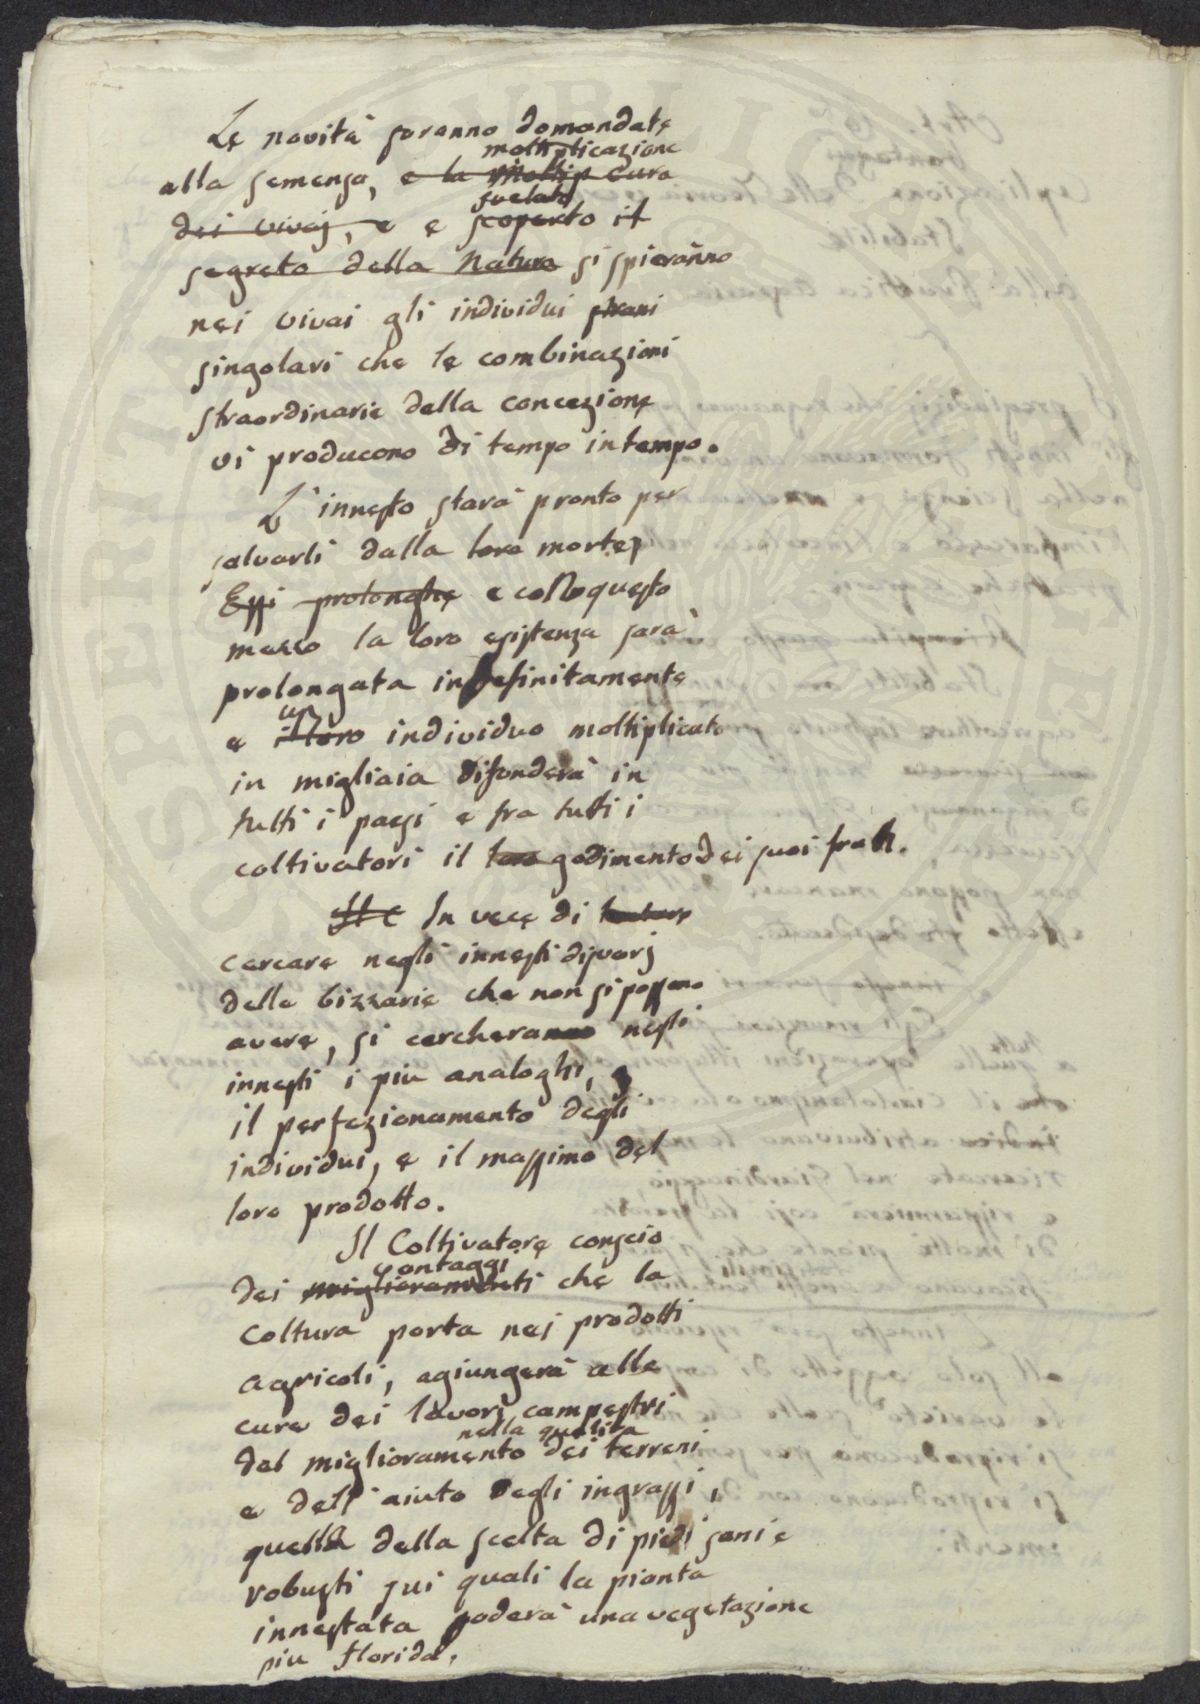 Le novità saranno domandate
moltiplicazione
alla semensa, e la moltip cura
svelato
dei vivaj, e e scoperto il
segreto della Natura si spieranno
nei vivai gli individui strani
singolari che le combinazioni
straordinarie della concezione
vi producono di tempo in tempo.
L'innesto starà pronto per
salvarli dalla loro morte,
Essi prolonghe e con questo
mezzo la loro esistenza sarà
prolongata indefinitamente
un
e il loro individuo moltiplicato
in migliaia difonderà in
tutti i paesi e fra tutti i
coltivatori il loro godimento dei suoi frutti.
In vece di
cercare negli innesti disparj
delle bizzarie che non si possono
avere, si cercheranno nesti
innesti i più analoghi, e
il perfezionamento degli
individui, e il massimo del
loro prodotto.
Il Coltivatore conscio
vantaggi
dei miglioramenti che la
Coltura porta nei prodotti
agricoli, agiungerà alle
cure dei lavori campestri
nella qualità
del miglioramento dei terreni
e dell'aiuto degli ingrassi,
quella della scelta di piedi sani e
robusti sui quali la pianta
innestata goderà una vegetazione
più florida.